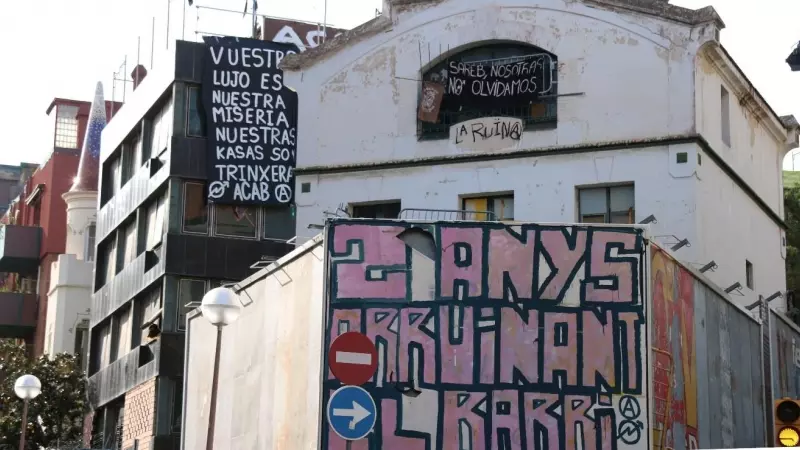 VUESTRO
LUJO ES
NUESTRA
MISERIA
NUESTRAS
KASAS SON
TRINXERA
ACAB
SAREB, NOSOTRAS
NO OLVIDAMOS
LA RUÏNA
2 ANYS
ARRUINANT
EL BARRI